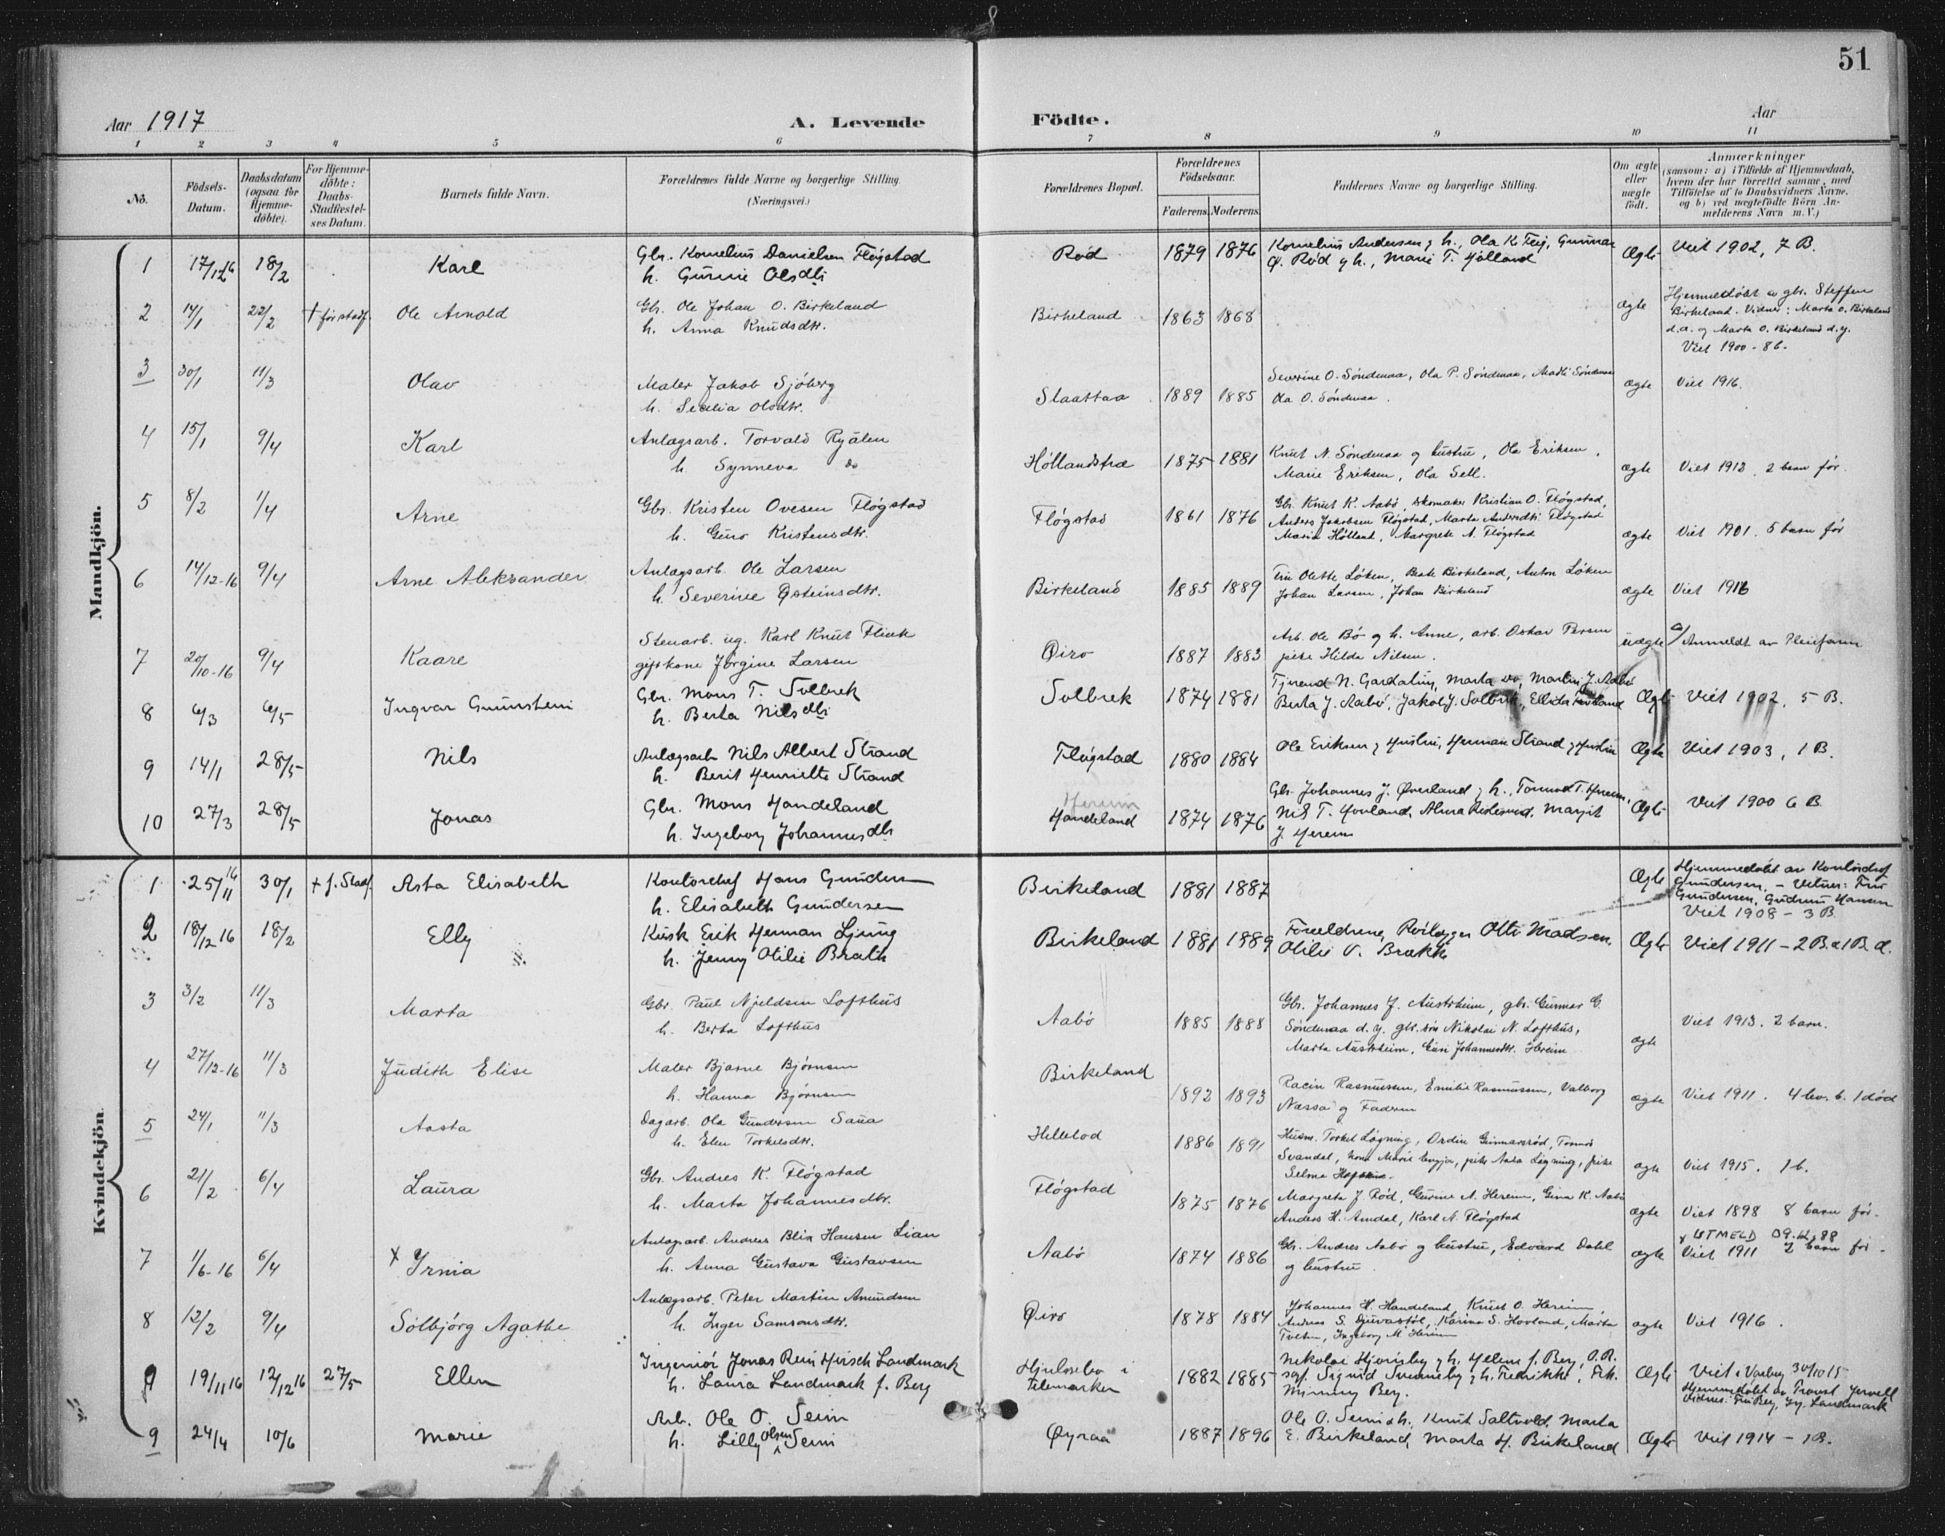 51
Aar 1917
A. Levende Födte.
Aar
1 2 3 4 5 6 7 8 9 10 11
No.
Födsels-Datum.
Daabsdatum (ogsaa for Hjemme-döbte).
For Hjemme-döbte: Daabs-Stadfæstel-ses Datum.
Barnets fulde Navn.
Forældrenes fulde Navne og borgerlige Stilling.
(Næringsvei.)
Forældrenes Bopæl.
Forældrenes Födselsaar.
Faderens. Moderens.
Faddernes Navne og borgerlige Stilling.
Om ægte eller uægte födt.
Anmærkninger
(saasom: a) i Tilfælde af Hjemmedaab,
hvem der har forrettet samme, med
Tilföielse af to Daabsvidners Navne.
og b) ved uægtefödte Börn An-
melderens Navn m. V.)
Mandkjön.
1 17/12 16 18/2 Karl Gbr. Kornelius Danielsen Fløgstad Rød 1879 1876 Kornelius Andersen og h., Ola K. Feig, Gunnar Ægte Viet 1902, 7 B.
h. Gurine Olsdtr. Ø. Rød og h., Marie T. Hølland
2 14/1 22/2 † før stadf. Ole Arnold Gbr. Ole Johan O. Birkeland Birkeland 1863 1868 ægte Hjemmedøbt av gbr. Steffen
h. Anna Knudsdtr. Birkeland. Vidner: Marta O. Birkeland
d.æ. og Marta O. Birkeland d.y.
Viet 1900 - 8 b.
3 30/1 11/3 Olav Maler Jakob Sjöberg Slaattaa 1889 1885 Severine O. Söndenaa, Ola P. Söndenaa, Söndenaa ægte Viet 1916.
h. Secelia Olsdtr. Ola O. Söndenaa.
4 15/1 9/4 Karl Anlægsarb. Torvald Ryälen Høllandstræ 1875 1881 Knut N. Söndenaa og hustru, Ole Eriksen, ægte Viet 1912, 2 barn før.
h. Synneva do Marie Eriksen, Ola Sell.
5 8/2 1/4 Arne Gbr. Kristen Ovesen Fløgstad Fløgstad 1861 1876 Gbr. Knut K. Aabö, skomaker Kristian O. Fløgstad, ægte Viet 1901. 5 barn før
h. Guro Kristensdtr. Anders Jakobsen Fløgstad, Marta Andersdtr. Fløgstad
Marie Hølland, Margrete A. Fløgstad
6 14/12-16 9/4 Arne Aleksander Anlægsarb. Ole Larsen Birkeland 1885 1889 Fru Olette Løken, Beate Birkeland, Anton Løken ægte Viet 1916
h. Severine Østeinsdtr. Johan Larsen, Johan Birkeland
7 20/10-16 9/4 Kaare Stenarb. ug. Karl Knut Flink Øiro 1887 1883 Arb. Ole Bø og h. Anne, arb. Oskar Persen uægte Anmeldt av
giftkone Jørgine Larsen pike Hilda Nilsen.
8 6/3 6/5 Ingvar Gunnstein Gbr. Mons T. Solbrek Solbrek 1874 1881 Tjerand N. Gardaling, Marta do, Martin J. Aabö Ægte Viet 1902, 5 B.
h. Berta Nilsdtr Berta J. Aabø, Jakob J. Solbrek,
9 14/1 28/5 Nils Anlægsarb Nils Albert Strand Fløgstad 1880 1884 Ole Eriksen og Hustru, Herman Strand og Hustru Ægte Viet 1903, 1 B.
h. Berit Henriette Strand
10 27/3 28/5 Jonas Gbr. Mons Handeland Hereim Handeland 1874 1876 Gbr. Johannes J. Øverland og h., Tormod T. Hereim, Ægte Viet 1900 6 B
h. Ingeborg Johannesdtr. Nils T. Hovland, Alma Margit
J. Hereim
Kvindekjön.
1 25/11 16 30/1 † f. Stadf. Asta Elisabeth Kontorchef Hans Gundersen Birkeland 1881 1887 Ægte Hjemmedøbt av Kontorchef
h. Elisabeth Gundersen Gundersen. - Vidner: Fru
Gundersen, Gudrun Hansen
Viet 1908 - 3 B.
2 18/12 16 18/2 Elly Kusk Erik Herman Ljung Birkeland 1881 1889 Forældrene, Otto Madsen, Ægte Viet 1911 - 2 B. 1 B d.
h. Jenny Otilie Brath Otilie V. Brække
3 3/2 11/3 Marta Gbr. Paul Njeldsen Lofthus Aabø 1885 1888 Gbr. Johannes J. Austrheim, gbr. Gunnar G. ægte Viet 1913. 2 barn.
h. Berta Lofthus Söndenaa d.y. gbr. søn Nikolai N. Lofthus,
Marta Austrheim, Guri Johannesdtr. Hereim
4 27/12-16 11/3 Judith Elise Maler Bjarne Bjørnsen Birkeland 1892 1893 Racin Rasmussen, Emilie Rasmussen, Valborg ægte Viet 1911. 4 lev. b. 1 död
h. Hanna Bjørnsen Næssa og Faderen
5 24/1 11/3 Aasta Dagarb. Ola Gundersen Saua Hellelod 1886 1891 Husm. Torkel Løgning, Ordin Gunnarsrød, Tormod ægte Viet 1915. 1 b.
h. Elen Torkelsdtr. Svandal, kona Marie pike Aasa Løgning, pike
Selma Hofseim.
6 21/2 6/4 Laura Gbr. Andres K. Fløgstad Fløgstad 1875 1876 Margreta J Rød, Gurine A. Hereim, Gina K. Aabø ægte Viet 1898 8 barn før.
h. Marta Johannesdtr. Anders H. Amdal, Karl N. Fløgstad
7 1/6-16 6/4 x Yrnia Anlægsarb. Andreas Blix Hansen Lian Aabø 1874 1886 Gbr. Andres Aabø og hustru, Edvard Dahl ægte x UTMELD 09.12.88
h. Anna Gustava Gustavsen og hustru. Viet 1911 2 barn før.
8 12/2 9/4 Solbjörg Agathe Anlægsarb. Peter Martin Amundsen Øiro 1878 1884 Johannes H. Handeland, Knut O. Hereim, ægte Viet 1916.
h. Inger Samsonsdtr. Andreas S. Djuvastøl, Karina S. Hovland, Marta
Tveten, Ingeborg M Hereim
9 19/11 16 12/12 16 27/5 Ellen Ingeniør Jonas Rein Hirsch Landmark Hjuksebo i Telemarken 1882 1885 Nikolai og h. Helene f. Berg, O.R. Ægte Viet i Varberg 30/10 15
h. Laura Landmark f. Berg sgf. Sigurd og h. Fredrikke, Frk. Hjemmedøbt av Provst Jervell
Minning Berg. Vidner: Fru Berg, Ing. Landmark
9 24/4 10/6 Marie Arb. Ole O. Seim Øyraa 1887 1896 Ole O. Seim &h. Knut Saltvold Marta Ægte Viet 1914 - 1 B.
h. Lilly Olsen Seim E. Birkeland, Marta H. Birkeland